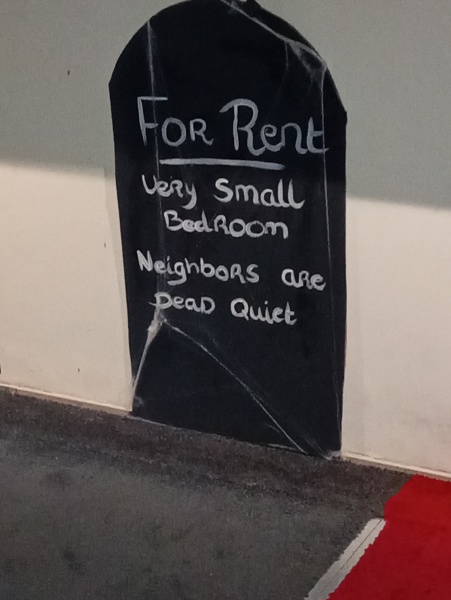 FOR Rent
Very Small
BedROOM
NeighboRS are
DeaD Quiet